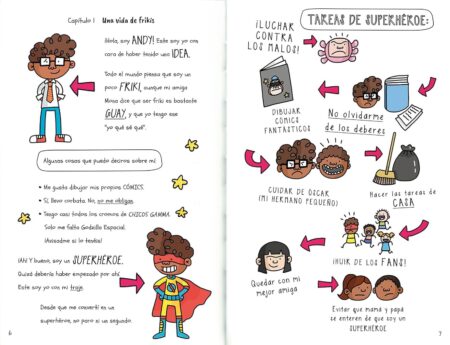 Capítulo 1 Una vida de frikis
¡Hola, soy ANDY! Este soy yo con
cara de haber tenido una IDEA.
Todo el mundo piensa que soy un
poco FRIKI, aunque mi amiga
Mona dice que ser friki es bastante
GUAY, y que yo tengo ese
"yo qué sé qué".
Algunas cosas que puedo deciros sobre mí:
• Me gusta dibujar mis propios CÓMICS.
• Sí, llevo corbata. No, no me obligan.
• Tengo casi todos los cromos de CHICOS GAMMA.
Solo me falta Godzilla Espacial.
¡Avisadme si lo tenéis!
¡Ah! Y bueno, soy un SUPERHÉROE.
Quizá debería haber empezado por ahí.
Este soy yo con mi traje.
Desde que me convertí en un
superhéroe, no paro ni un segundo.
6
TAREAS DE SUPERHÉROE:
¡LUCHAR
CONTRA
LOS MALOS!
DIBUJAR
CÓMICS
FANTÁSTICOS
No olvidarme
de los deberes
CUIDAR DE OSCAR
(MI HERMANO PEQUEÑO)
Hacer las tareas de
CASA
¡HUIR DE LOS FANS!
Quedar con mi
mejor amiga
Evitar que mamá y papá
se enteren de que soy un
SUPERHÉROE
7